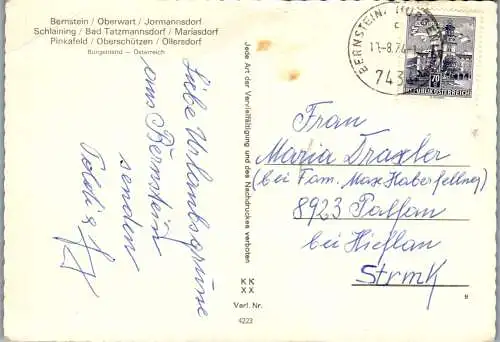 Bernstein / Oberwart / Jormannsdorf
Schlaining / Bad Tatzmannsdorf / Mariasdorf
Pinkafeld / Oberschützen / Ollersdorf
Burgenland — Österreich
Liebe Urlaubsgrüsse
aus Bernstein
senden
Poldi &
Jede Art der Vervielfältigung und des Nachdruckes verboten
KK
XX
Verl. Nr.
4223
BERNSTEIN,
c
-8.74
743
70
REPUBLIK ÖSTERREICH
Frau
Maria Draxler
(bei Fam. Max Haberfellner)
8923 Palfau
bei Hieflau
Strmk